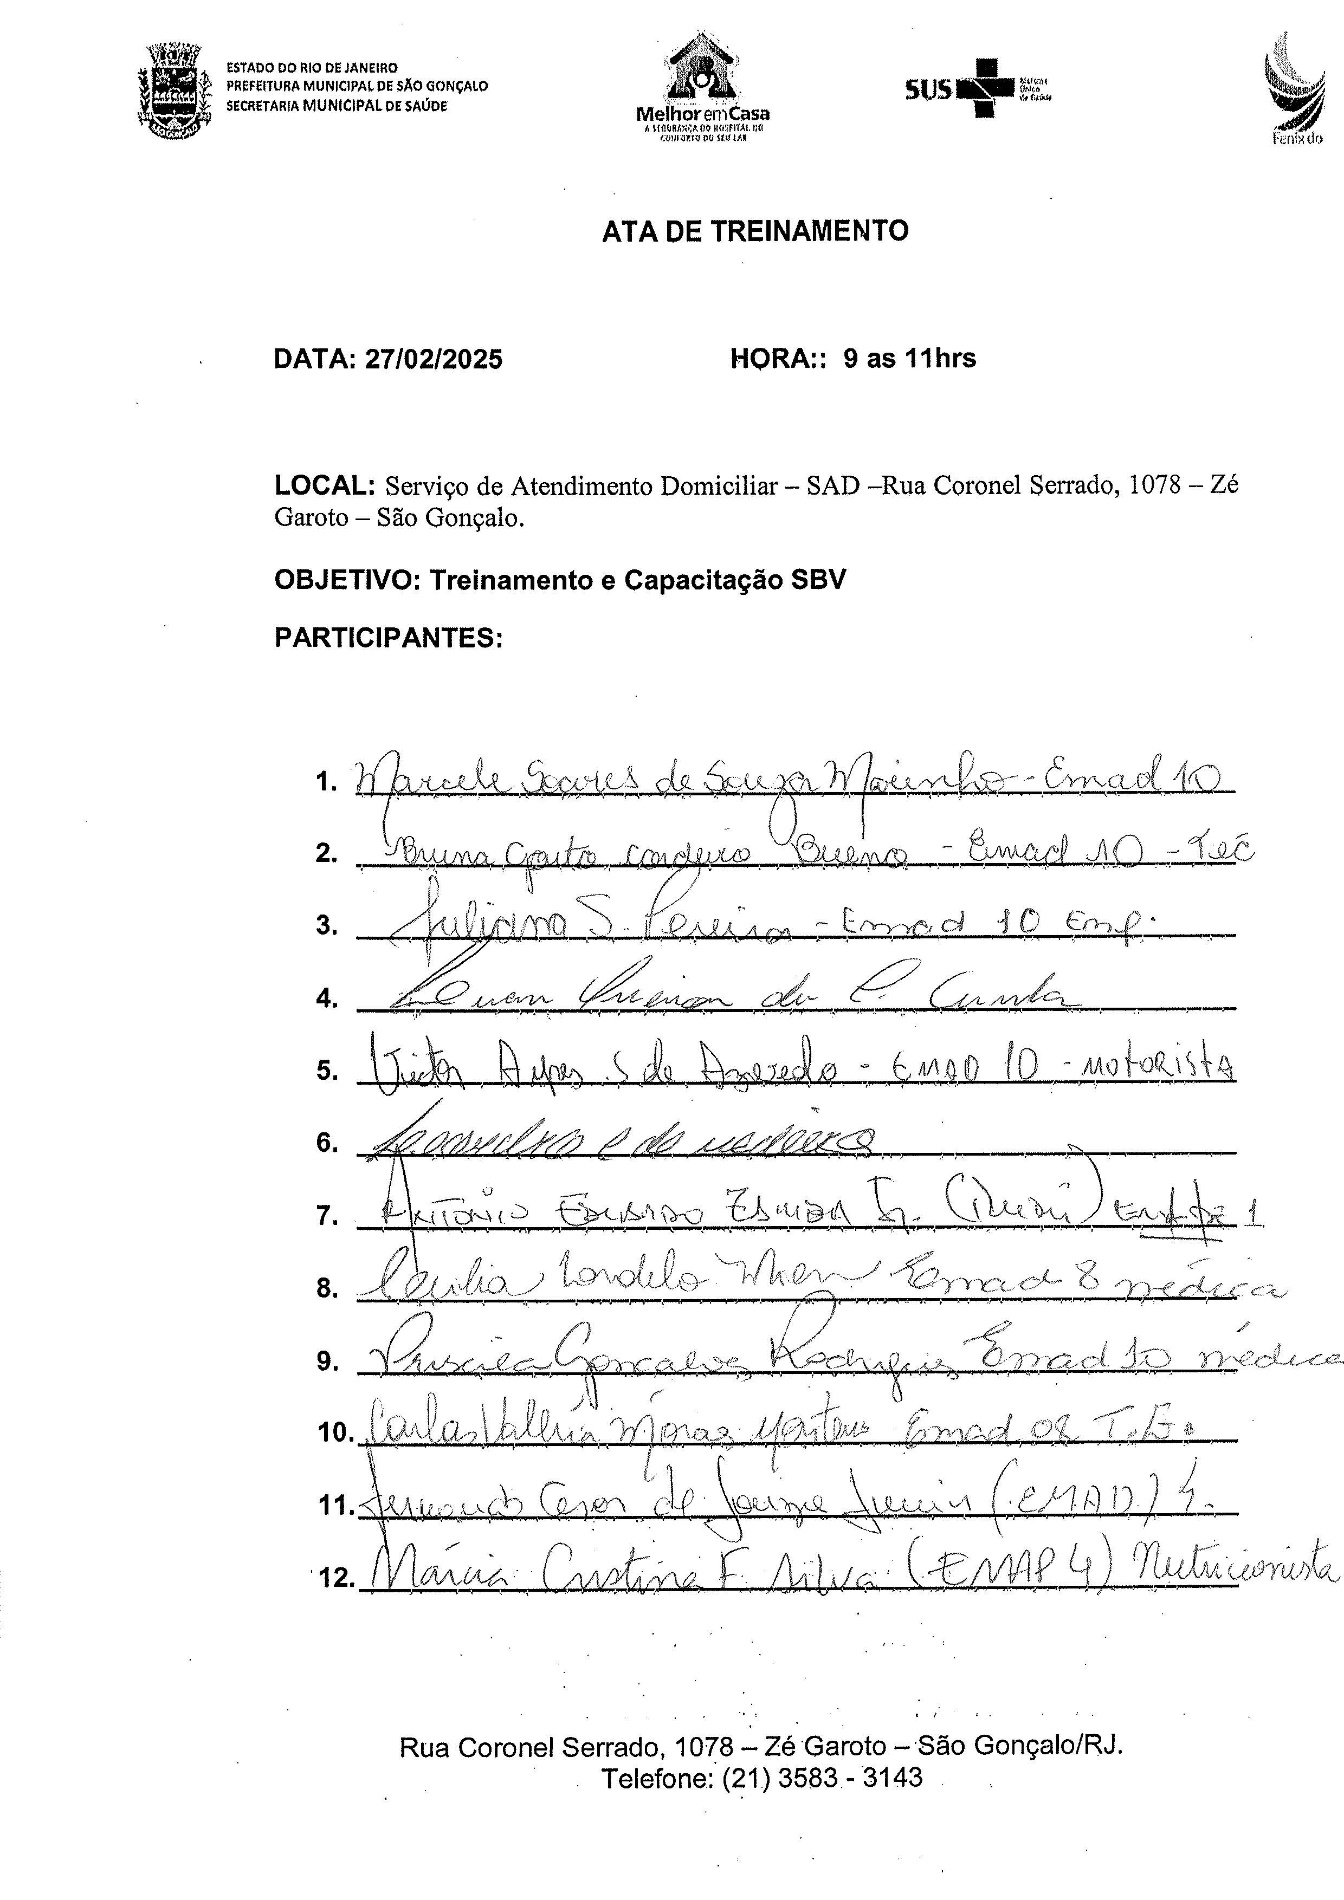 ESTADO DO RIO DE JANEIRO
PREFEITURA MUNICIPAL DE SÃO GONÇALO
SECRETARIA MUNICIPAL DE SAÚDE
Melhor em Casa
A SEGURANÇA DO HOSPITAL NO
CONFORTO DO SEU LAR
SUS
Sistema
Único
de Saúde
Fenix do
ATA DE TREINAMENTO
DATA: 27/02/2025 HORA:: 9 as 11hrs
LOCAL: Serviço de Atendimento Domiciliar – SAD –Rua Coronel Serrado, 1078 – Zé
Garoto – São Gonçalo.
OBJETIVO: Treinamento e Capacitação SBV
PARTICIPANTES:
1. Marcele Soares de Souza Marinho - Emad 10
2. Bruna cordeiro Bueno - Emad 10 - Tec
3. Juliana S. Pereira - Emad 10 Enf.
4. Luan de C. Cunha
5. Victor S de Azevedo - EMAD 10 - MOTORISTA
6. Leandro
7. ANTÔNIO EDUARDO Jr. 1
8. Cecilia Emad 8 médica
9. Priscila Gonçalves Rodrigues Emad 10 médica
10. Carla Valéria Emad 08 T.E.
11. Fernando Cesar de Junior (EMAD) 4.
12. Márcia Cristina F. Silva (EMAP 4) Nutricionista
Rua Coronel Serrado, 1078 – Zé Garoto – São Gonçalo/RJ.
Telefone: (21) 3583 - 3143